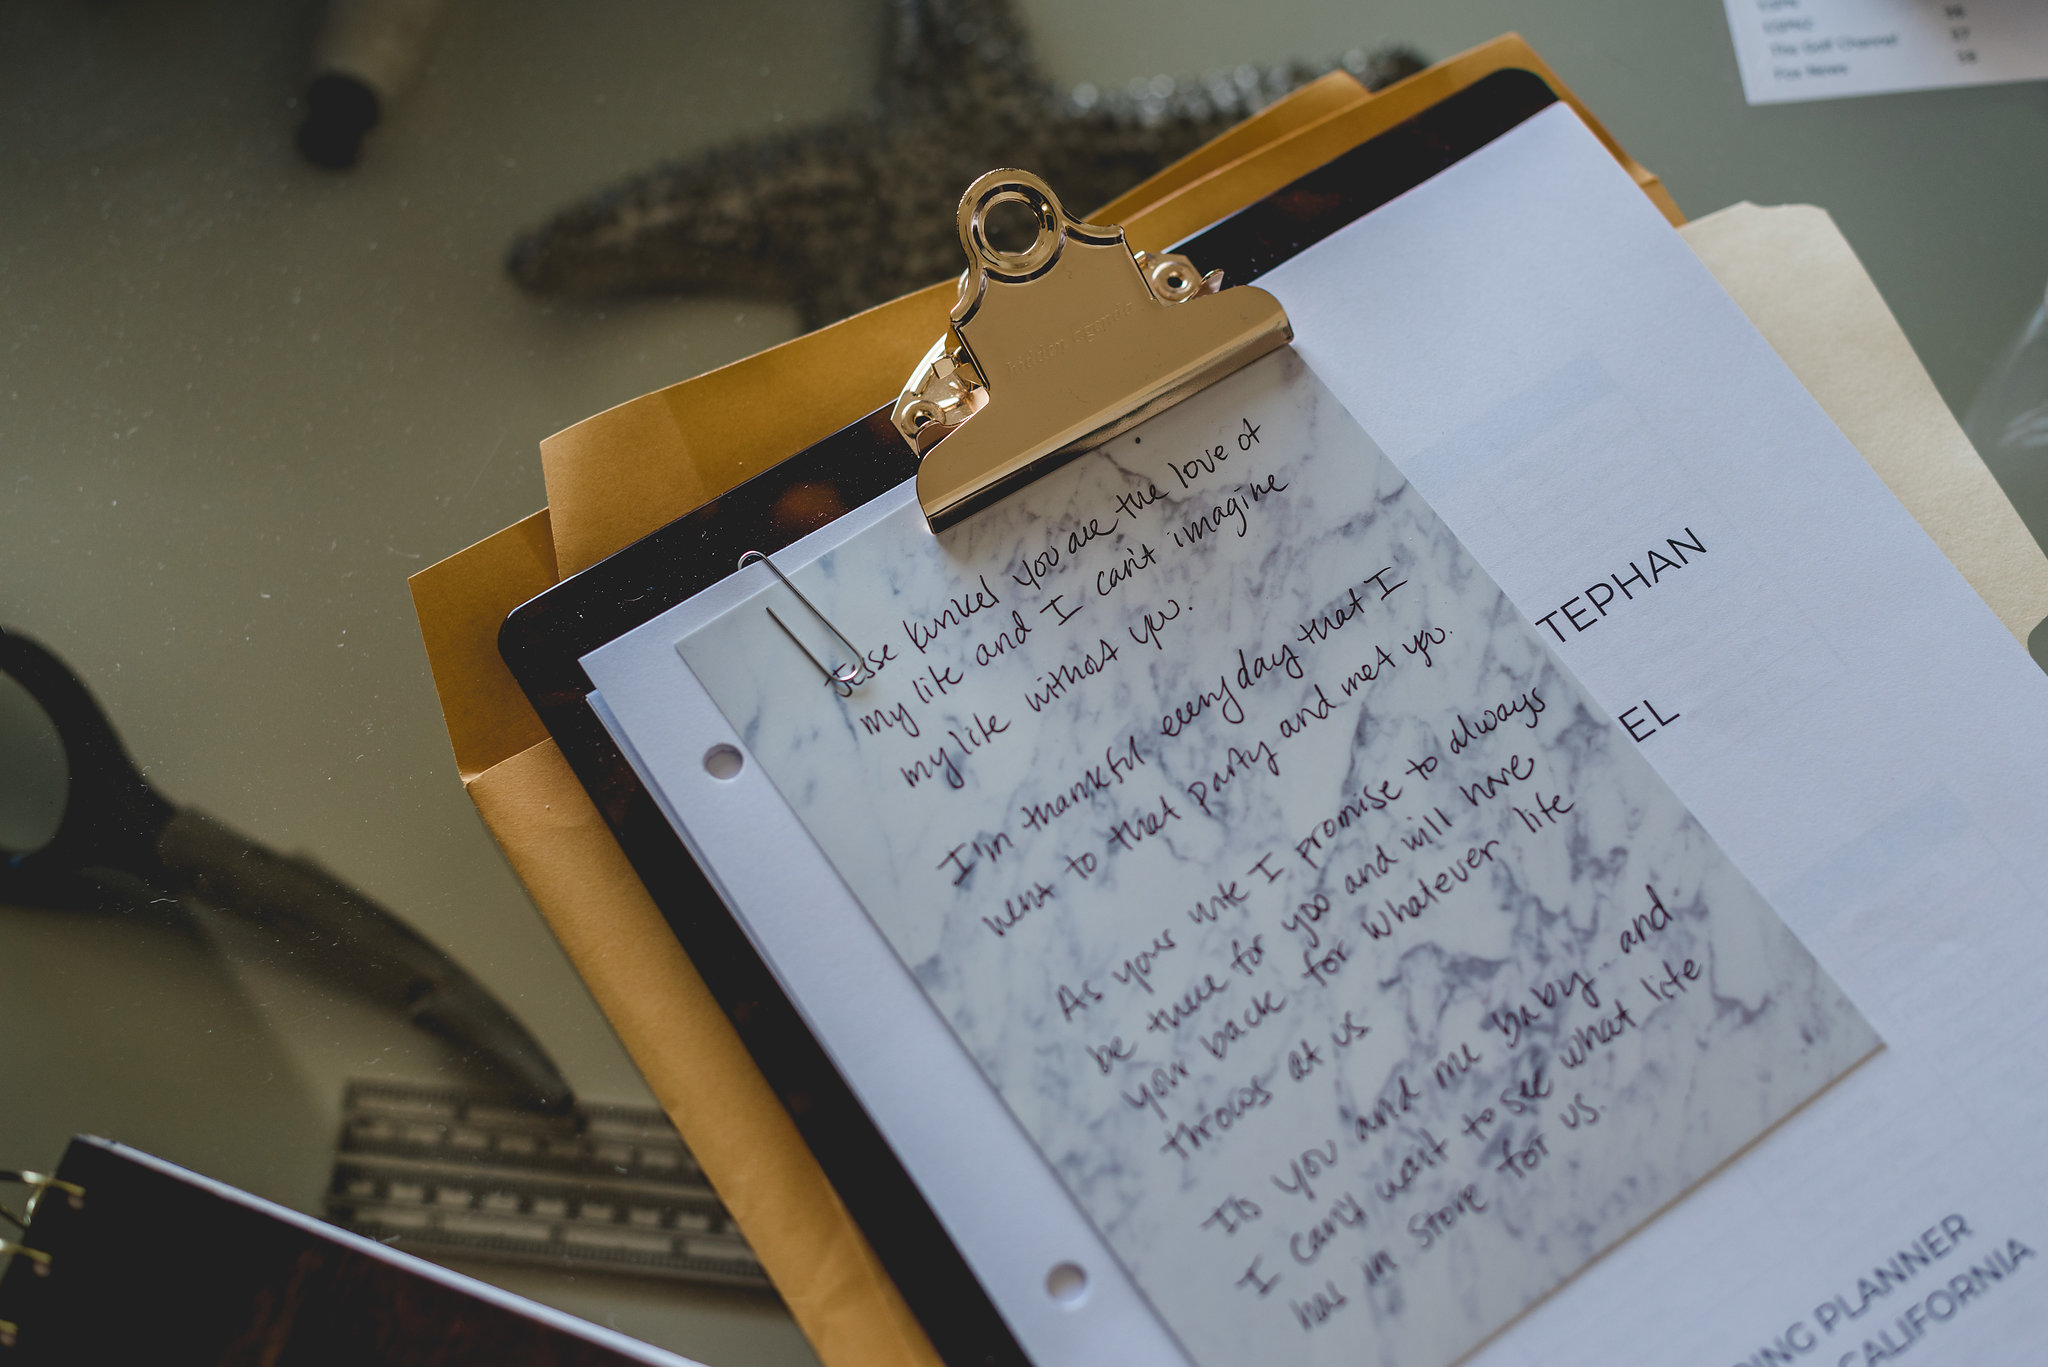 The Golf Channel 57
Fox News 58
hidden agenda
Jesse Kunkel you are the love of
my life and I can't imagine
my life without you.
I'm thankful everyday that I
went to that party and met you.
As your wife I promise to always
be there for you and will have
your back for whatever life
throws at us
It's you and me baby.. and
I can't wait to see what life
has in store for us.
TEPHAN
EL
DING PLANNER
CALIFORNIA